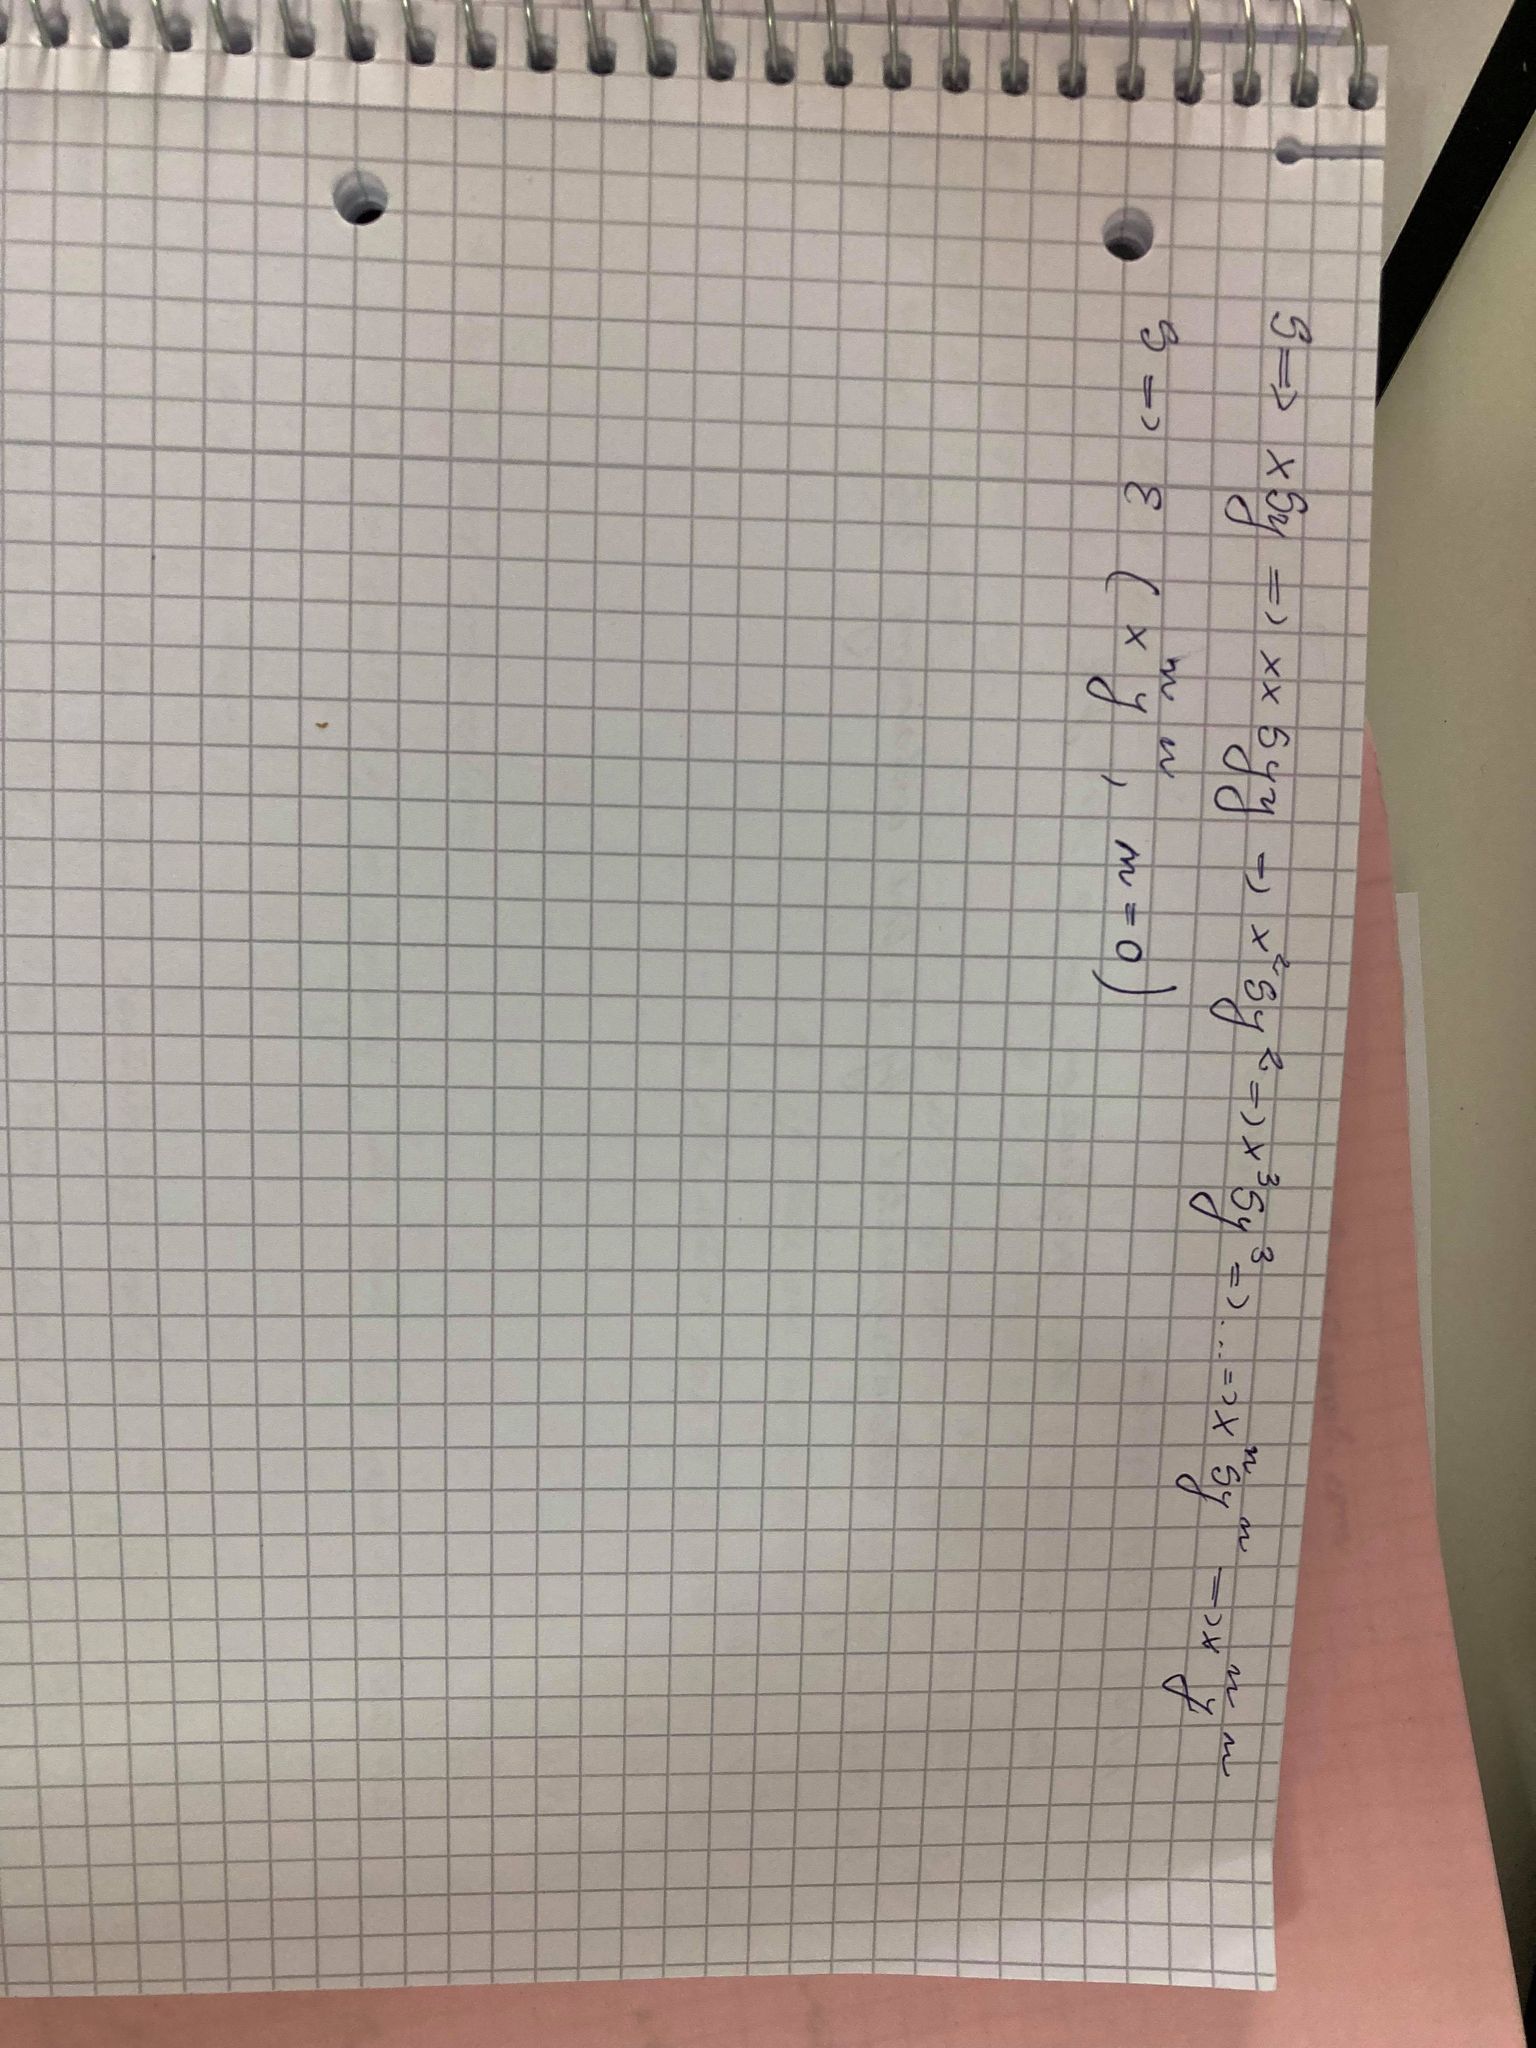 S => xSy => xxSyy => x²Sy² => x³Sy³ => .... => xⁿSyⁿ => xⁿyⁿ
S => ε (xⁿyⁿ, n=0)